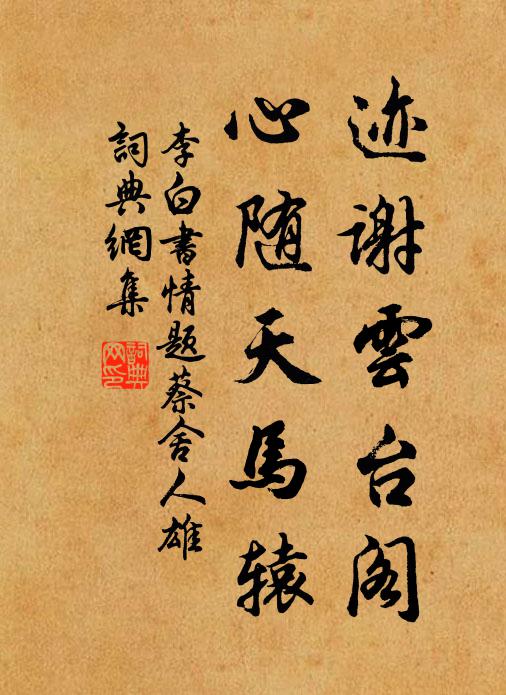 迹谢雲台阁
心随天馬辕
李白書情题蔡舍人雄
詞典網集
詞典網印